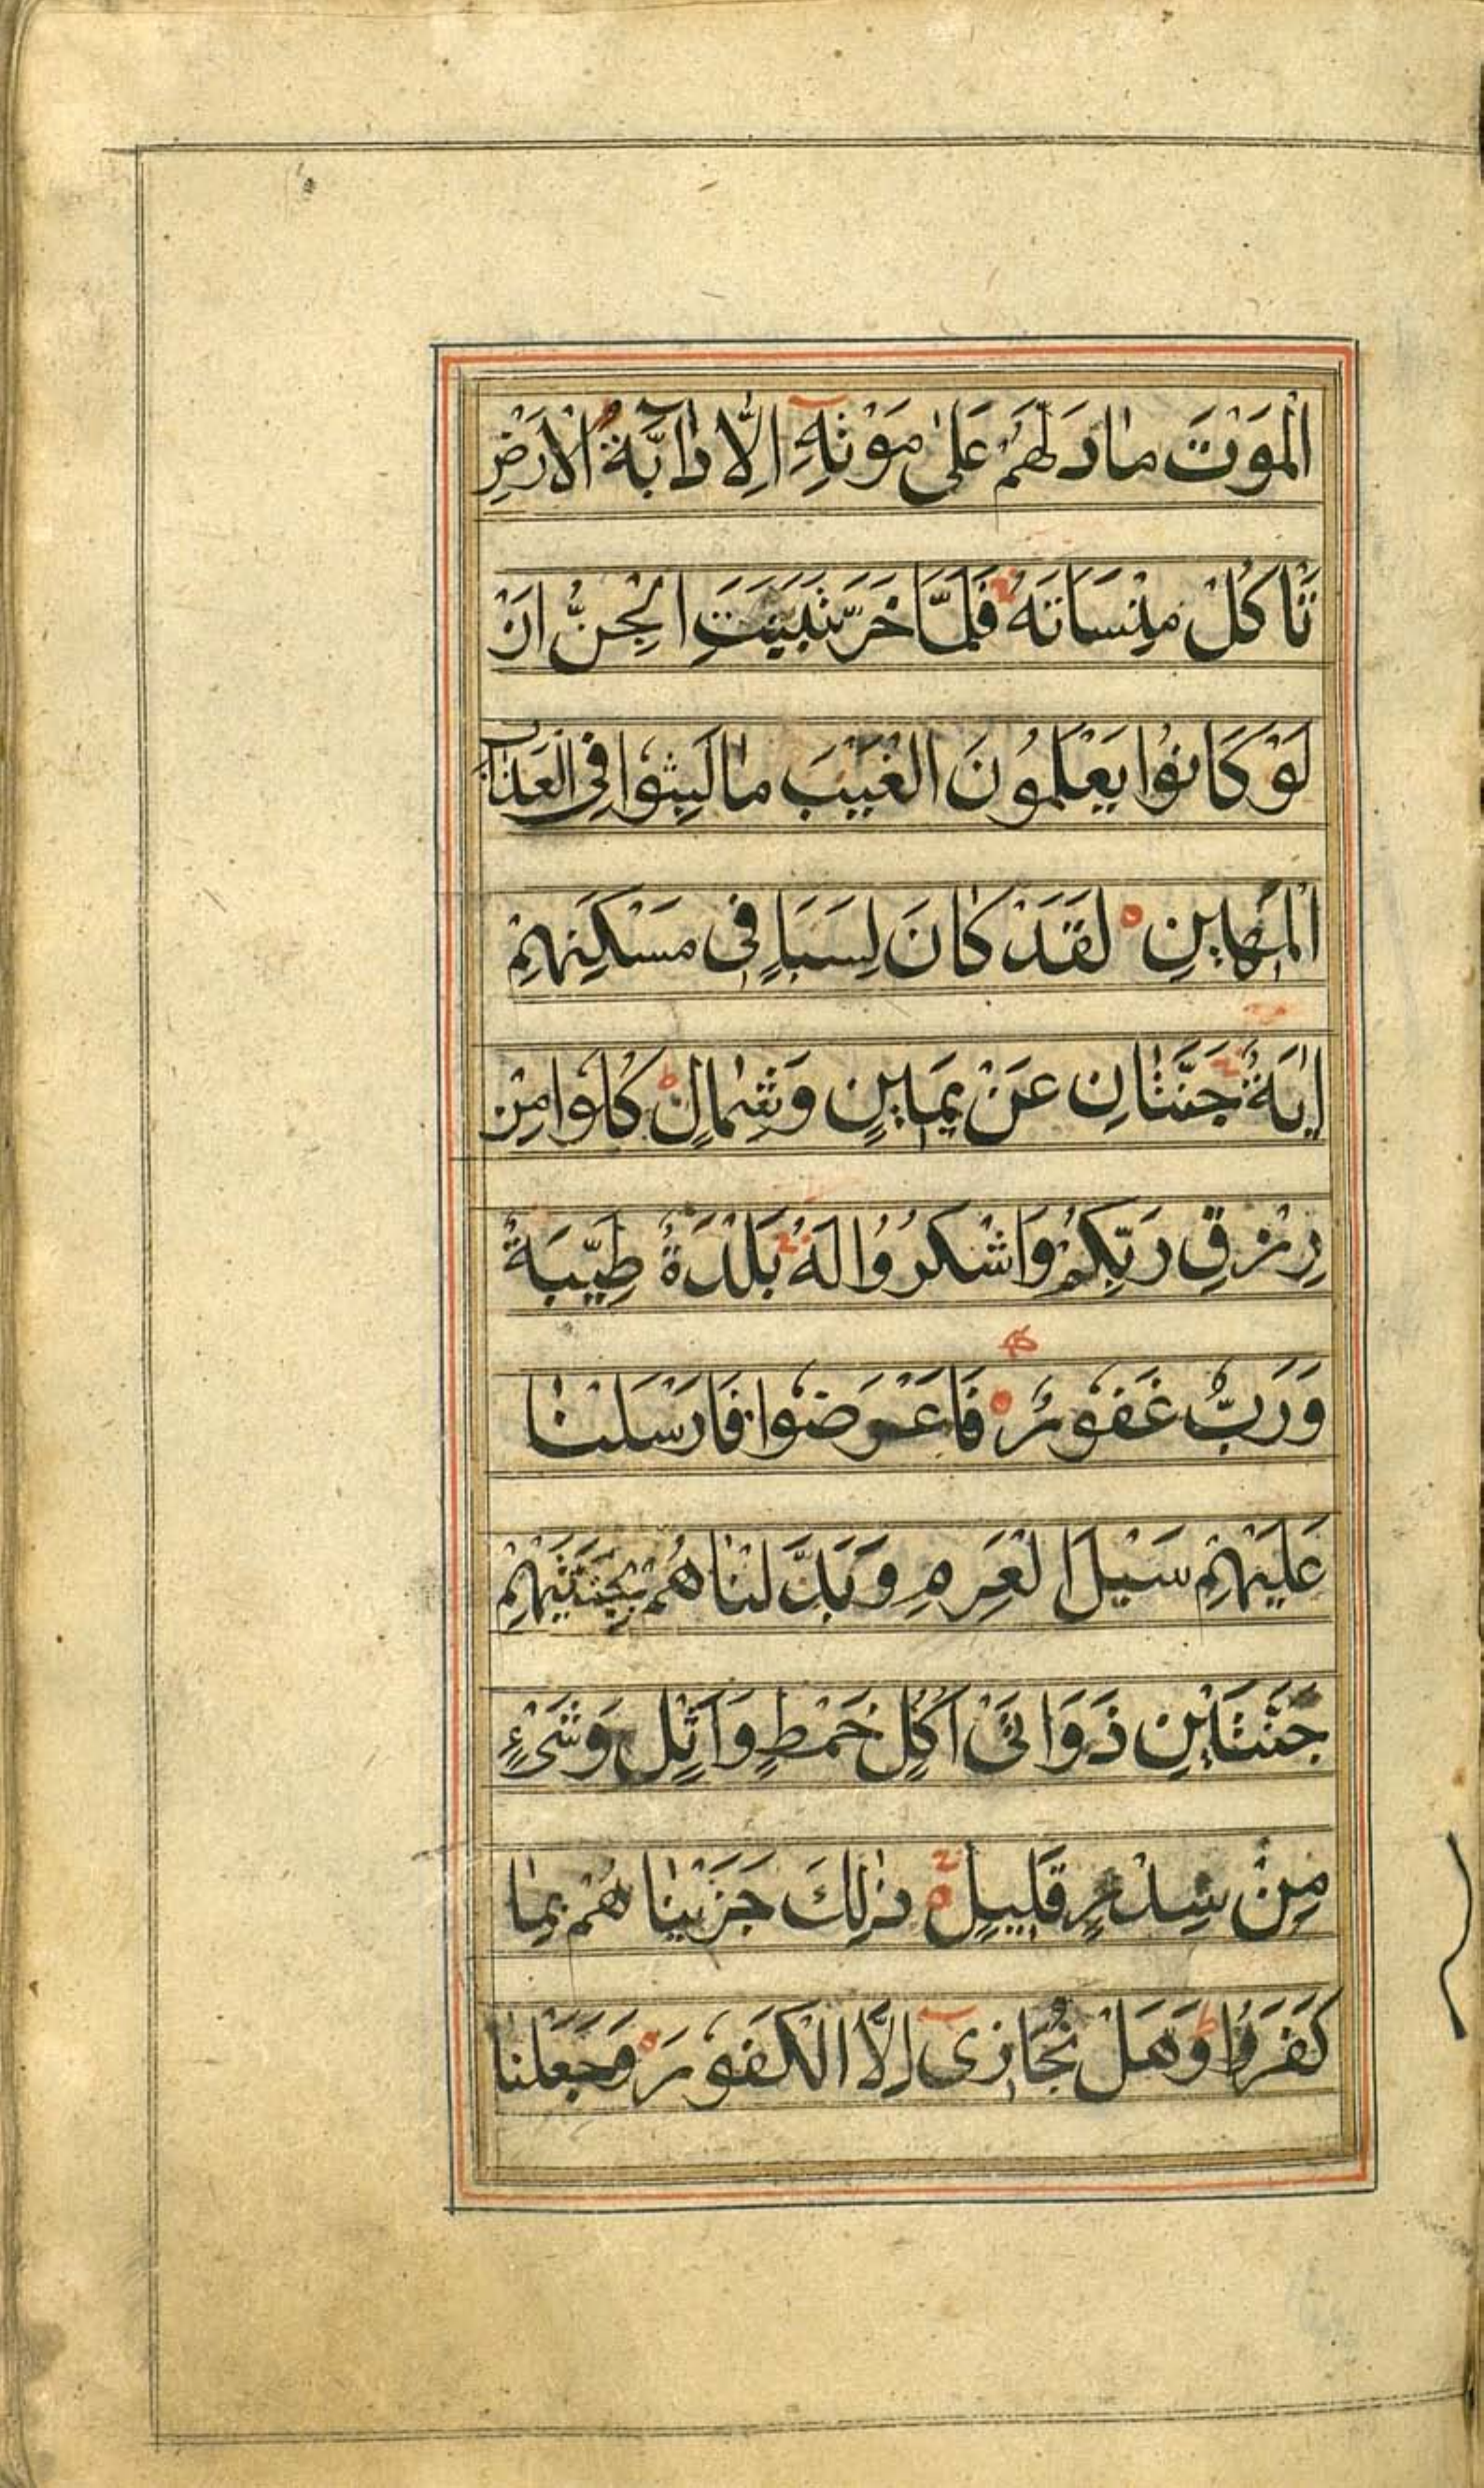 الْمَوْتَ مٰا دَلَّهُمْ عَلىٰ مَوْتِهِٓ اِلّٰا دٰٓابَّةُ الْاَرْضِ
تَاْكُلُ مِنْسَاتَهُ فَلَمَّا خَرَّ تَبَيَّنَتِ الْجِنُّ اَنْ
لَوْ كَانُوا يَعْلَمُونَ الْغَيْبَ مٰا لَبِثُوا فِى الْعَذَابِ
الْمُهِينِ لَقَدْ كَانَ لِسَبَاٍ فِى مَسْكَنِهِمْ
اٰيَةٌ جَنَّتٰانِ عَنْ يَمِينٍ وَشِمٰالٍ كُلُوا مِنْ
رِزْقِ رَبِّكُمْ وَاشْكُرُوا لَهُ بَلْدَةٌ طَيِّبَةٌ
وَرَبٌّ غَفُورٌ فَاَعْرَضُوا فَاَرْسَلْنٰا
عَلَيْهِمْ سَيْلَ الْعَرِمِ وَبَدَّلْنٰاهُمْ بِجَنَّتَيْهِمْ
جَنَّتَيْنِ ذَوَاتَىْ اُكُلٍ خَمْطٍ وَاَثْلٍ وَشَىْءٍ
مِنْ سِدْرٍ قَلِيلٍ ذٰلِكَ جَزَيْنٰاهُمْ بِمٰا
كَفَرُوا وَهَلْ نُجَازِىٓ اِلَّا الْكَفُورَ وَجَعَلْنٰا